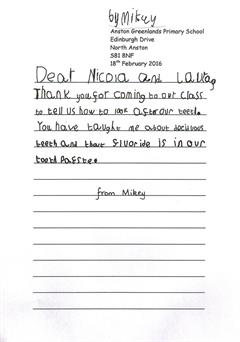 by Mikey
Anston Greenlands Primary School
Edinburgh Drive
North Anston
S81 8NF
18th February 2016
Dear Nicola and
Thank you for coming to our class
to tell us how to look after our teeth.
You have taught me about deciduous
teeth and that fluoride is in our
tooth paste.
from Mikey